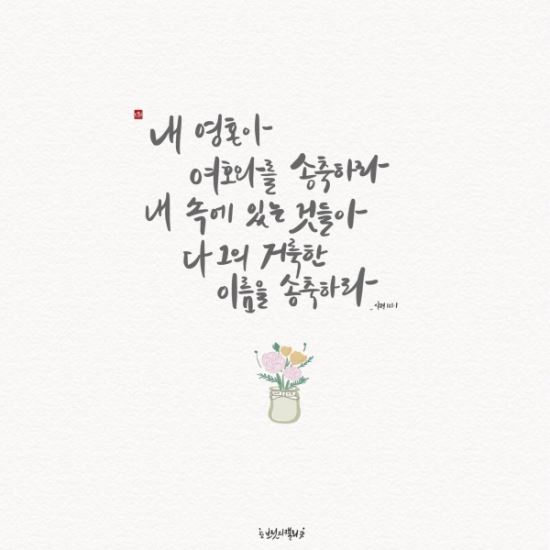 내 영혼아
여호와를 송축하라
내 속에 있는 것들아
다 그의 거룩한
이름을 송축하라
_시편 103:1